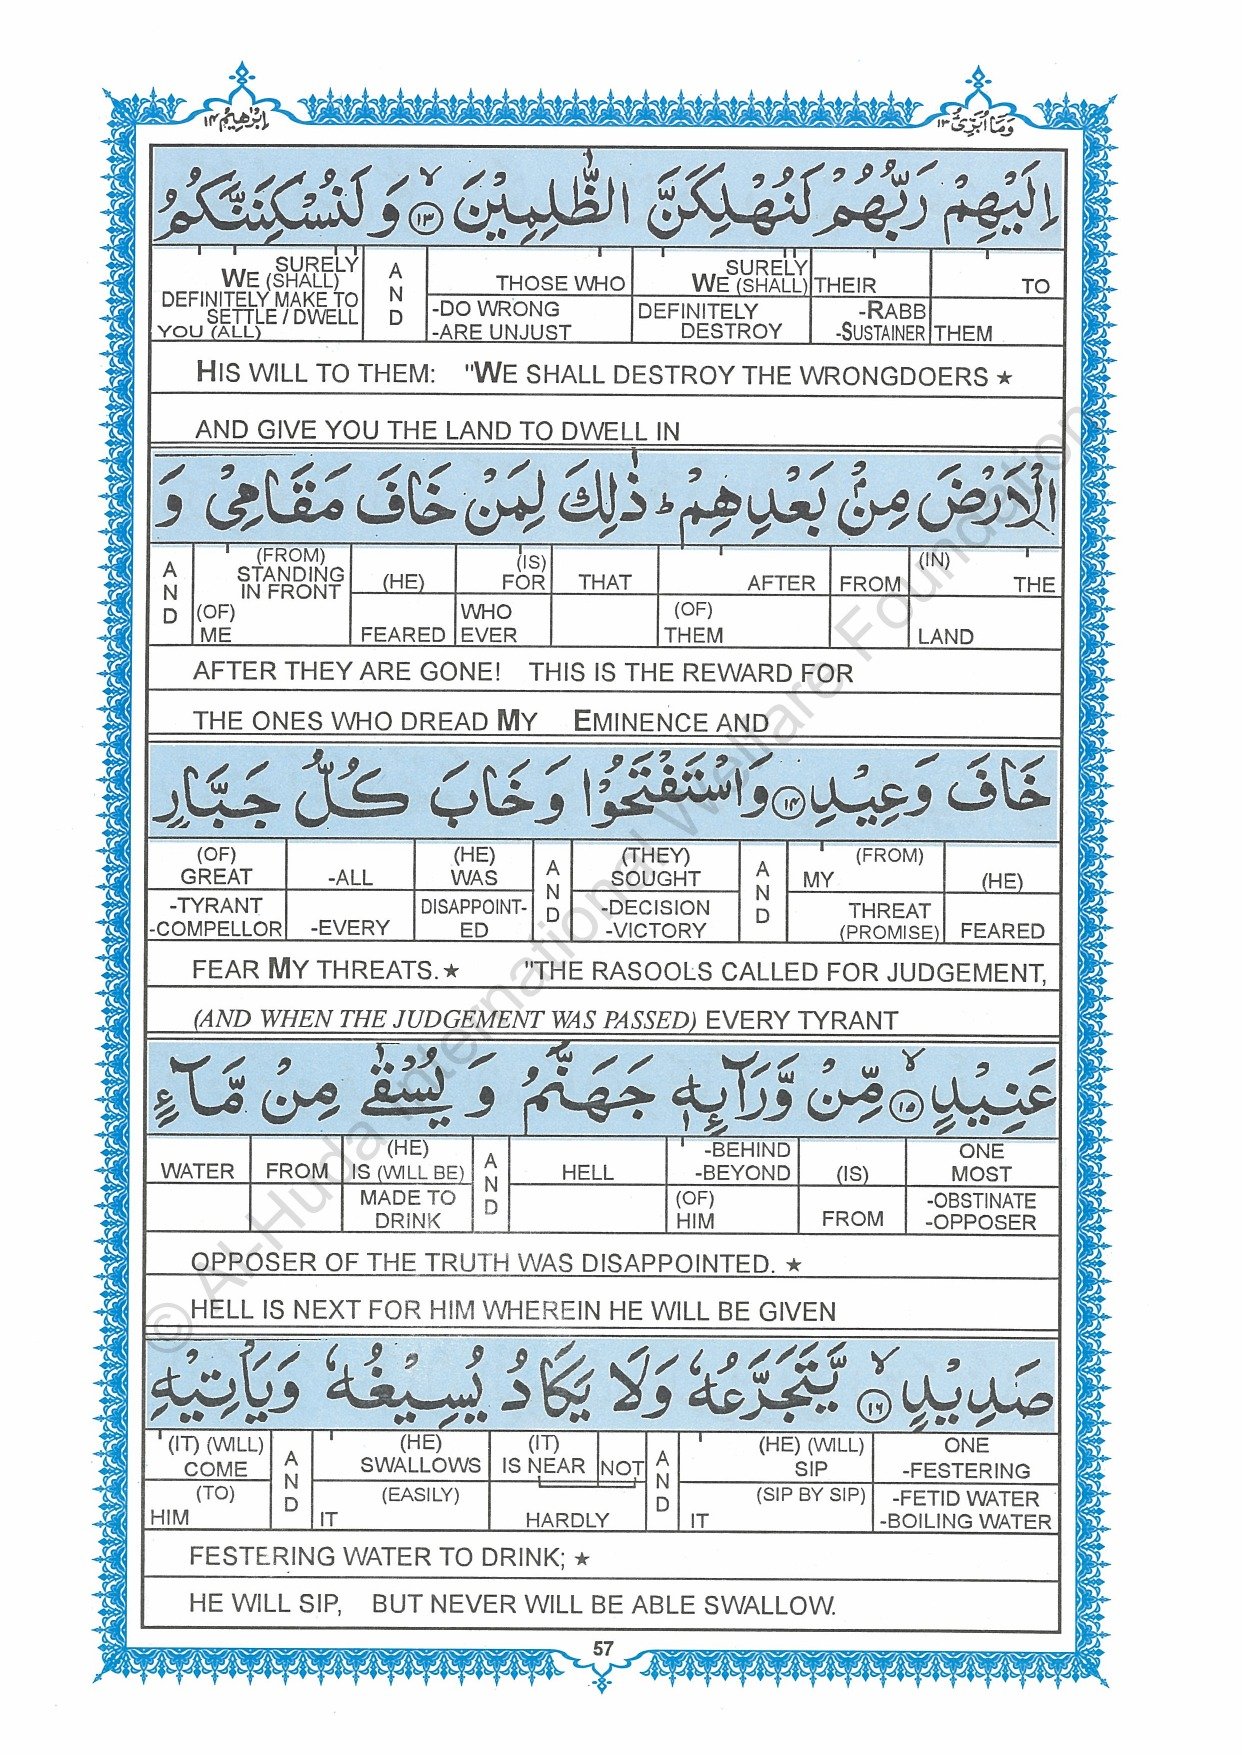 وَمَا أُبَرِّئُ ١٣
اِبْرٰهِيْم ١٤
اِلَيْهِمْ رَبُّهُمْ لَنُهْلِكَنَّ الظّٰلِمِيْنَ ۙ﴿١٣﴾ وَ لَنُسْكِنَنَّكُمُ
SURELY WE (SHALL) DEFINITELY MAKE TO SETTLE / DWELL YOU (ALL) | AND | THOSE WHO -DO WRONG -ARE UNJUST | SURELY WE (SHALL) DEFINITELY DESTROY | THEIR -RABB -SUSTAINER | TO THEM
HIS WILL TO THEM: "WE SHALL DESTROY THE WRONGDOERS ★
AND GIVE YOU THE LAND TO DWELL IN
الْاَرْضَ مِنْۢ بَعْدِهِمْ ؕ ذٰلِكَ لِمَنْ خَافَ مَقَامِيْ وَ
AND | (FROM) STANDING IN FRONT (OF) ME | (HE) FEARED | (IS) FOR WHO EVER | THAT | AFTER (OF) THEM | FROM | (IN) THE LAND
AFTER THEY ARE GONE! THIS IS THE REWARD FOR
THE ONES WHO DREAD MY EMINENCE AND
خَافَ وَعِيْدِ ﴿١٤﴾ وَاسْتَفْتَحُوْا وَ خَابَ كُلُّ جَبَّارٍ
(OF) GREAT -TYRANT -COMPELLOR | -ALL -EVERY | (HE) WAS DISAPPOINT-ED | AND | (THEY) SOUGHT -DECISION -VICTORY | AND | (FROM) MY THREAT (PROMISE) | (HE) FEARED
FEAR MY THREATS.★ "THE RASOOLS CALLED FOR JUDGEMENT,
(AND WHEN THE JUDGEMENT WAS PASSED) EVERY TYRANT
عَنِيْدٍ ۙ﴿١٥﴾ مِّنْ وَّرَآئِهٖ جَهَنَّمُ وَ يُسْقٰى مِنْ مَّآءٍ
WATER | FROM | (HE) IS (WILL BE) MADE TO DRINK | AND | HELL | -BEHIND -BEYOND (OF) HIM | (IS) FROM | ONE MOST -OBSTINATE -OPPOSER
OPPOSER OF THE TRUTH WAS DISAPPOINTED. ★
HELL IS NEXT FOR HIM WHEREIN HE WILL BE GIVEN
صَدِيْدٍ ۙ﴿١٦﴾ يَّتَجَرَّعُهٗ وَلَا يَكَادُ يُسِيْغُهٗ وَيَاْتِيْهِ
(IT) (WILL) COME (TO) HIM | AND | (HE) SWALLOWS (EASILY) IT | (IT) IS NEAR NOT HARDLY | AND | (HE) (WILL) SIP (SIP BY SIP) IT | ONE -FESTERING -FETID WATER -BOILING WATER
FESTERING WATER TO DRINK; ★
HE WILL SIP, BUT NEVER WILL BE ABLE SWALLOW.
57
© Al-Huda International Welfare Foundation